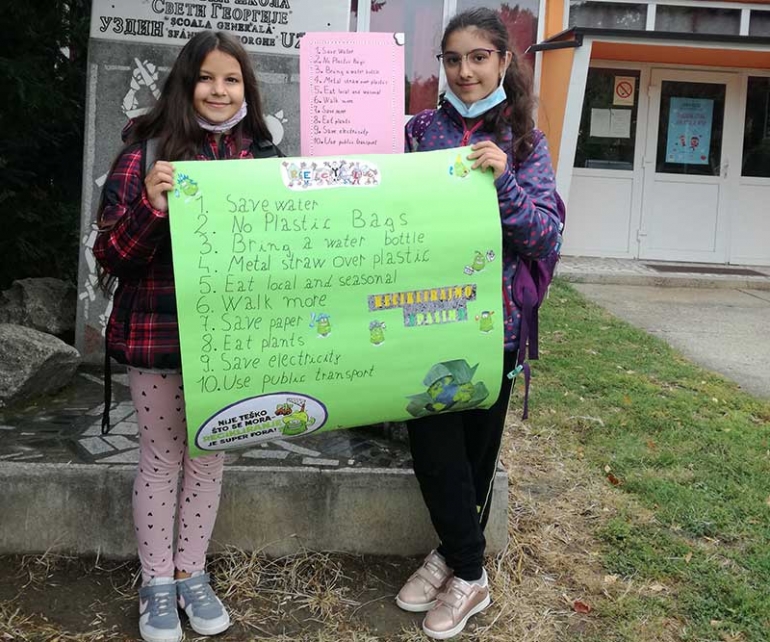 СВЕТИ ГЕОРГИЈЕ"
УЗДИН "ŞCOALA GENERALĂ
1. Save Water
2. No Plastic Bags
3. Bring a water bottle
4. Metal straw over plastic
5. Eat local and seasonal
6. Walk more
7. Save paper
8. Eat plants
9. Save electricity
10. Use public
1. Save water
2. No Plastic Bags
3. Bring a water bottle
4. Metal straw over plastic
5. Eat local and seasonal
6. Walk more
7. Save paper
8. Eat plants
9. Save electricity
10. Use public transport
RECIKLIRAJMO
NIJE TEŠKO
ŠTO SE MORA-
RECIKLIRANJE
JE SUPER FORA!